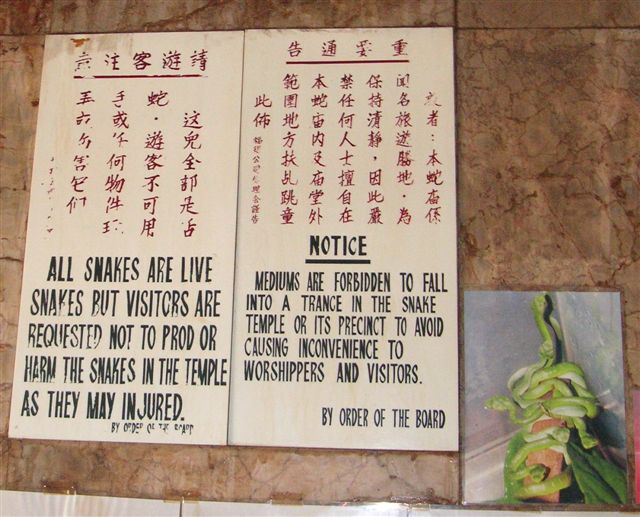 請遊客注意
这兒全部是
蛇·遊客不可用
手或任何物件
害它们
ALL SNAKES ARE LIVE
SNAKES BUT VISITORS ARE
REQUESTED NOT TO PROD OR
HARM THE SNAKES IN THE TEMPLE
AS THEY MAY INJURED.
BY ORDER OF THE BOARD
重要通告
者：本蛇庙係
聞名旅遊勝地，為
保持清靜，因此嚴
禁任何人士擅自在
本蛇庙內及庙堂外
範圍地方扶乩跳童
此佈
福建公司信理会謹告
NOTICE
MEDIUMS ARE FORBIDDEN TO FALL
INTO A TRANCE IN THE SNAKE
TEMPLE OR ITS PRECINCT TO AVOID
CAUSING INCONVENIENCE TO
WORSHIPPERS AND VISITORS.
BY ORDER OF THE BOARD